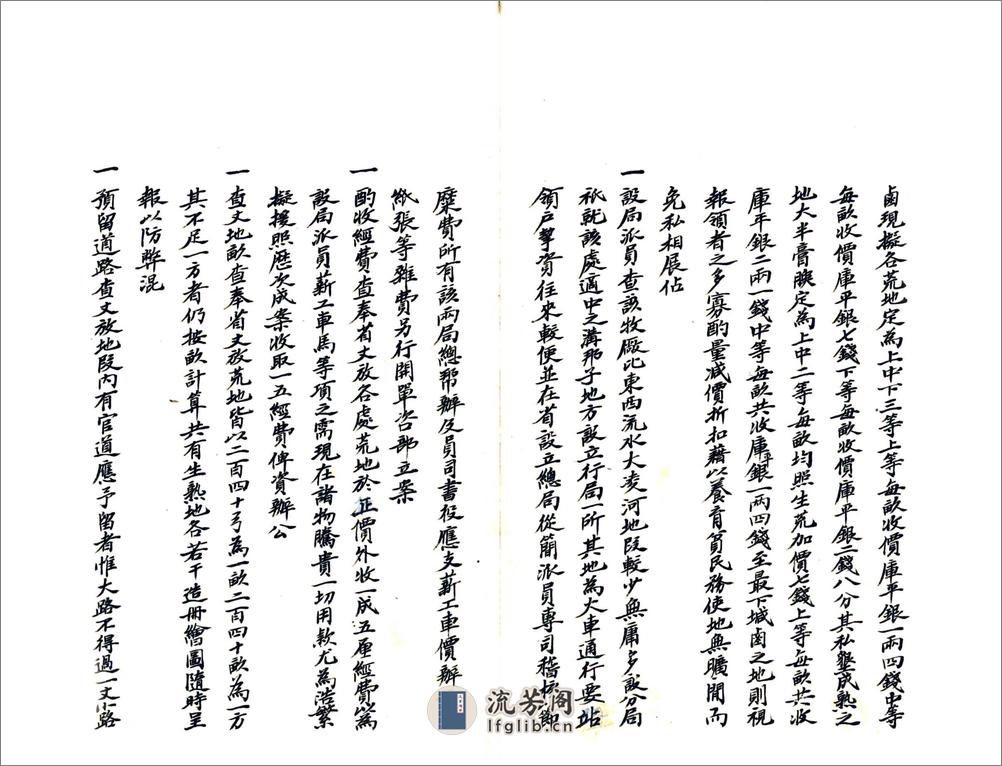 鹵現擬各荒地定為上中下三等上等每畝收價庫平銀一兩四錢中等
每畝收價庫平銀七錢下等每畝收價庫平銀二錢八分其私墾成熟之
地大半膏腴定為上中二等每畝均照生荒加價七錢上等每畝共收
庫平銀二兩一錢中等每畝共收庫平銀一兩四錢至最下堿鹵之地則視
報領者之多寡酌量減價折扣藉以養育貧民務使地無曠閒而
免私相展佔
一設局派員查該牧廠比東西流水大凌河地段較少無庸多設分局
祇就該處適中之溝幇子地方設立行局一所其地為大車通行要站
領户挈資往來較便並在省設立總局從簡派員專司稽核節
糜費所有該兩局總幫辦及員司書役應支薪工車價辦
紙張等雜費另行開單咨部立案
一酌收經費查奉省丈放各處荒地於正價外收一成五厘經費以為
設局派員薪工車馬等項之需現在諸物騰貴一切用款尤為浩繁
擬援照歷次成案收取一五經費俾資辦公
一查丈地畝查奉省丈放荒地皆以二百四十弓為一畝二百四十畝為一方
其不足一方者仍按畝計算共有生熟地各若干造冊繪圖隨時呈
報以防弊混
一預留道路查丈放地段内有官道應予留者惟大路不得過一丈小路
流芳阁
lfglib.com